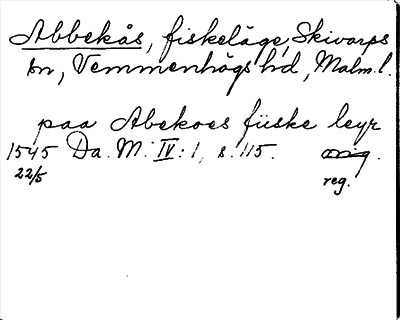 Abbekås, fiskeläge, Skivarps
sn, Vemmenhögs hd, Malm. l.
paa Abekoes füske leyr
1545 Da. M. IV: 1, s. 115. orig.
22/5 reg.